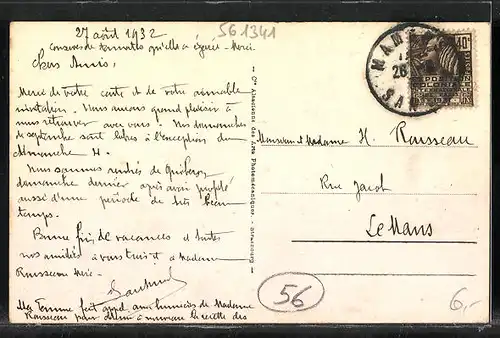 27 août 1932
561341
conserves de tomates qu'elle a égarée - Merci.
Chers Amis,
Merci de votre carte et de votre aimable
invitation. Nous aurons grand plaisir à
nous retrouver avec vous ! Nos dimanches
de septembre sont libres à l'exception du
dimanche 4.
Nous sommes rentrés de Quiberon
dimanche dernier après avoir profité
aussi d'une période de très beau
temps.
Bonne fin de vacances et toutes
nos amitiés à vous trois et à Madame
Rousseau Mère.
Ma femme fait appel aux lumières de Madame
Rousseau pour obtenir à nouveau la recette des
Cie Alsacienne des Arts Photomécaniques - Strasbourg
Monsieur et Madame H. Rousseau
Rue Jacob
Le Mans
56
6,-
40c
POSTES